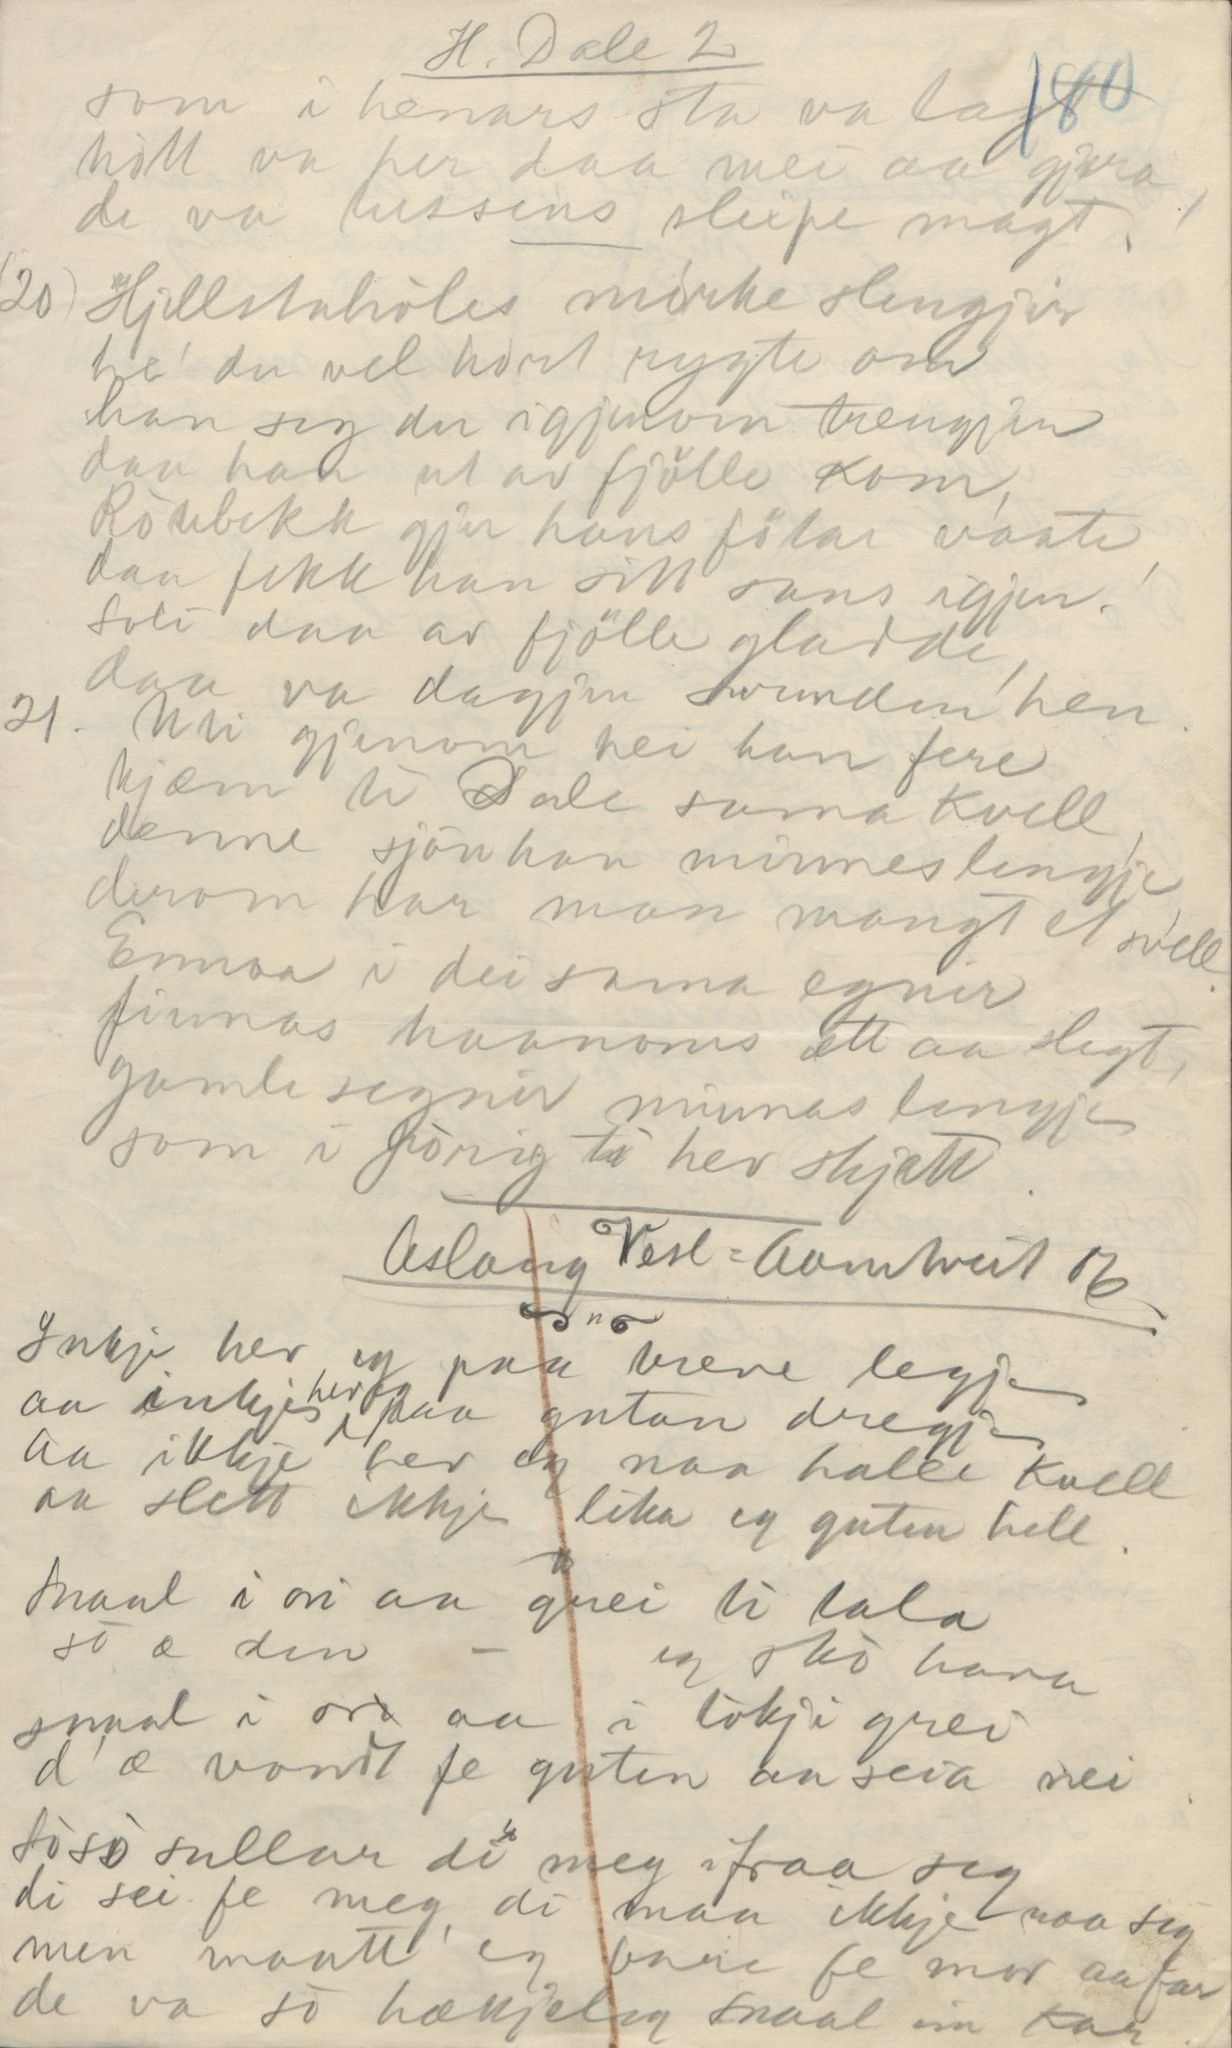 H. Dale 2
180
som i henars sta va lagt
hött va her daa mei aa gjera,
de va tussens sleipe magt.
(20) Hjellstahöles mörke slengjir
he' du vel hört rygte om
han seg der igjenom trengjer
daa han ut av fjölle kom,
gjer hans fötar vaate,
daa fekk han sitt sans igjen.
Soli daa av fjölle gladde,
daa va dagjen svunden hen.
21. Uti gjenom hei han fere
kjæm ti Dale sama kvell,
denne sjön han minnes lengje,
derom har man mangt et svell.
Ennaa i dei sama egnir
finnas haanoms ætt aa slegt,
gamle segnir minnas lengje
som i förig ti hev skjett.
Aslaug Vesl-Aamtveit 16
Inkje hev eg paa vreve legje
aa inkje hev eg paa gutan dregje
aa ikkje hev eg naa halle kvell
aa slett ikkje lika eg guten hell.
Snaal i ori aa grei ti tala
sö æ den – eg skö hava
snaal i ori aa i tökji grei
d'æ vondt fe guten aa seia nei.
Sösö sullar di meg ifraa seg
di sei fe meg, di maa ikkje naa seg
men maatt eg bare fe mor aa far
de va sö hækjeleg snaal ein kar.